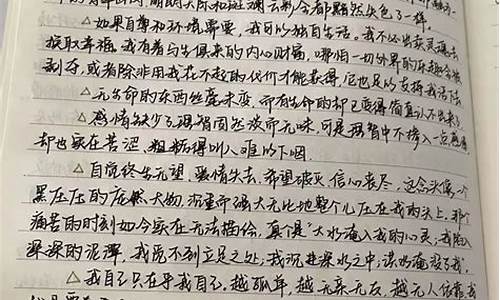 晴朗天际和斑斓云彩全都黯然失色了一样。
△如果自尊和环境需要,我可以独自生活。我不必出卖灵魂去
换取幸福。我有着与生俱来的内心财富,哪怕一切外界的乐趣全被
剥夺,或者除非用我付不起的代价才能获得,它也足以支持我活下去。
△无生命的东西丝毫未变,而有生命的却已变得简直认不出来了。
△感情缺少了理智固然淡而无味,可是理智中不掺入一点感情
却也实在苦涩、粗糙得叫人难以下咽。
△自觉终生无望,爱情失去,希望破灭,信心丧尽,这念头像一个
黑压压的庞然大物,沉重而强大无比地整个儿压在我的头上。那个
痛苦的时刻如今实在无法描绘,真个是"大水淹入我的心灵,我陷入
深深的泥潭,我觅不到立足之处;我沉进深水之中;洪水淹没了我"。
△我自己只在乎我自己,越孤单,越无亲无友,越无人依靠,我